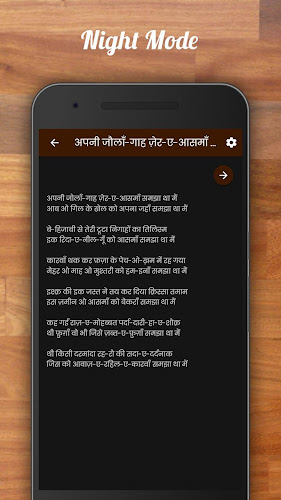 Night Mode
अपनी जौलाँ-गाह ज़ेर-ए-आसमाँ ...
अपनी जौलाँ-गाह ज़ेर-ए-आसमाँ समझा था मैं
आब ओ गिल के खेल को अपना जहाँ समझा था मैं
बे-हिजाबी से तेरी टूटा निगाहों का तिलिस्म
इक रिदा-ए-नील-गूँ को आसमाँ समझा था मैं
कारवाँ थक कर फ़ज़ा के पेच-ओ-ख़म में रह गया
मेहर ओ माह ओ मुश्तरी को हम-इनाँ समझा था मैं
इश्क़ की इक जस्त ने तय कर दिया क़िस्सा तमाम
इस ज़मीन ओ आसमाँ को बेकराँ समझा था मैं
कह गईं राज़-ए-मोहब्बत पर्दा-दारी-हा-ए-शौक़
थी फ़ुग़ाँ वो भी जिसे ज़ब्त-ए-फ़ुग़ाँ समझा था मैं
थी किसी दरमांदा रह-रौ की सदा-ए-दर्दनाक
जिस को आवाज़-ए-रहिल-ए-कारवाँ समझा था मैं